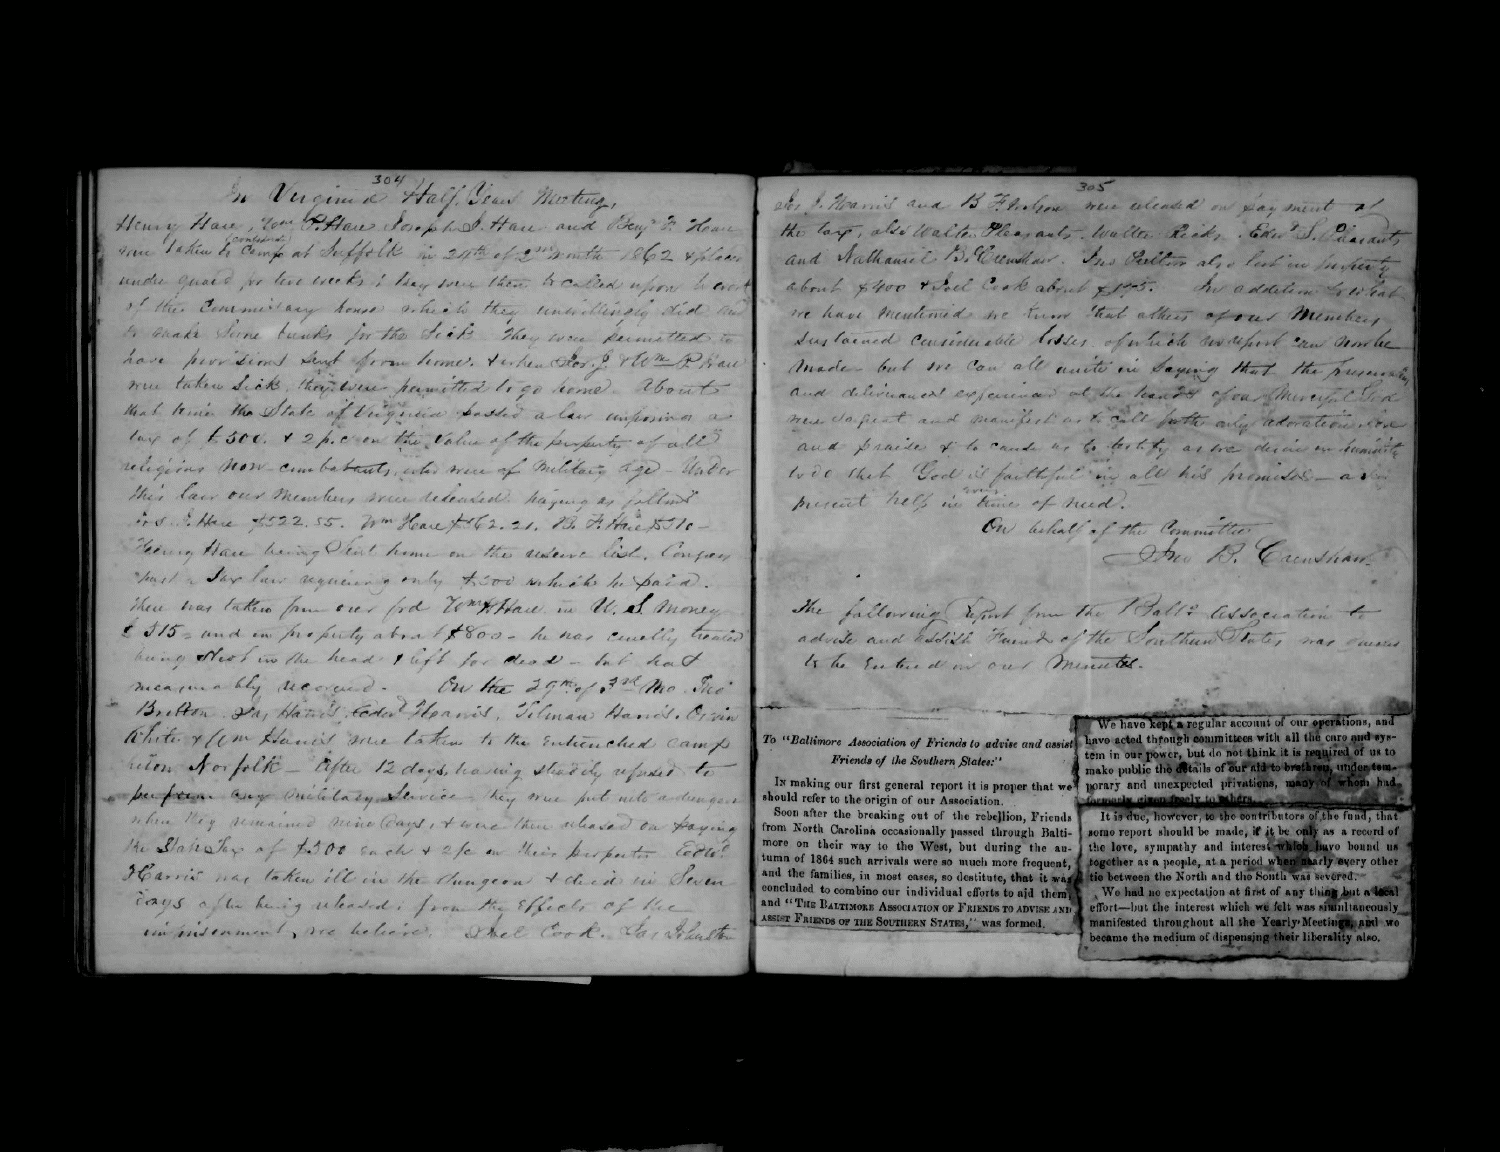 304
In Virginia Half Years Meeting,
Henry Hare, Wm P. Hare Joseph J. Hare and Benj. F. Hare
were taken to Confederate Camp at Suffolk in 24th of 2nd month 1862 & placed
under guard for two weeks; they were then called upon to work
of the Commissary house which they unwillingly did and
to make some bunks for the Sick. They were permitted to
have provisions sent from home. & when Jos. J. & Wm P. Hare
were taken Sick, they were permitted to go home. About
that time the State of Virginia passed a law imposing a
tax of $500. & 2 p.c on the value of the property of all
religious non-combatants, who were of military age - Under
this law our members were released. paying as follows
Jos. J. Hare $522.55. Wm Hare B. F. Hare $510-
Henry Hare being Sent home on the reserve list. Congress
tax law requiring only $500 which he paid.
There was taken from our frd Wm H Hare in U. S. Money
$515 - and in property about $800 - he was cruelly treated
being Shot in the head & left for dead - but has
measurably recovered. On the 29th of 3rd Mo. Jno
Bretton. Jas, Harris, Harris, Tilman Harris. Orvin
White & Wm Harris were taken to the entrenched camp
below Norfolk - After 12 days, having steadily refused to
perform any military Service they were put into a dungeon
where they remained nine days, & were then released on paying
the State Tax of $500 each & 2 p/c on their properties Edwd
Harris was taken ill in the dungeon & died in Seven
days after being released; from the effects of the
imprisonment, we believe. Joel Cook. Jas, Johnston
305
Jos J. Harris and B F. were released on payment of
the tax, also Walter Pleasants. Walter Ricks. Edwd S. Pleasants
and Nathaniel B. Crenshaw. Jno also lost in property
about $400 & Joel Cook about In addition to what
we have mentioned we know that others of our Members
sustained considerable losses of which no report can now be
made but we can all unite in saying that the preservation
and deliverance experienced at the hands of our Merciful God
were so great and manifest as to call forth only adoration love
and praise & to cause us to testify as we desire in humility
to do that God is faithful in all his promises - a
present help in every time of need.
On behalf of the Committee
Jno B. Crenshaw.
The following Report from the Balto Association to
advise and assist Friends of the Southern States was
to be Entered on our Minutes.
To "Baltimore Association of Friends to advise and assist
Friends of the Southern States:"
IN making our first general report it is proper that we
should refer to the origin of our Association.
Soon after the breaking out of the rebellion, Friends
from North Carolina occasionally passed through Balti-
more on their way to the West, but during the au-
tumn of 1864 such arrivals were so much more frequent,
and the families, in most cases, so destitute, that it was
concluded to combine our individual efforts to aid them,
and "THE BALTIMORE ASSOCIATION OF FRIENDS TO ADVISE AND
ASSIST FRIENDS OF THE SOUTHERN STATES," was formed.
We have kept a regular account of our operations, and
have acted through committees with all the care and sys-
tem in our power, but do not think it is required of us to
make public the details of our aid to brethren, under tem-
porary and unexpected privations, many of whom had
formerly given freely to others.
It is due, however, to the contributors of the fund, that
some report should be made, if it be only as a record of
the love, sympathy and interest which have bound us
together as a people, at a period when nearly every other
tie between the North and the South was severed.
We had no expectation at first of any thing but a local
effort—but the interest which we felt was simultaneously
manifested throughout all the Yearly Meetings, and we
became the medium of dispensing their liberality also.